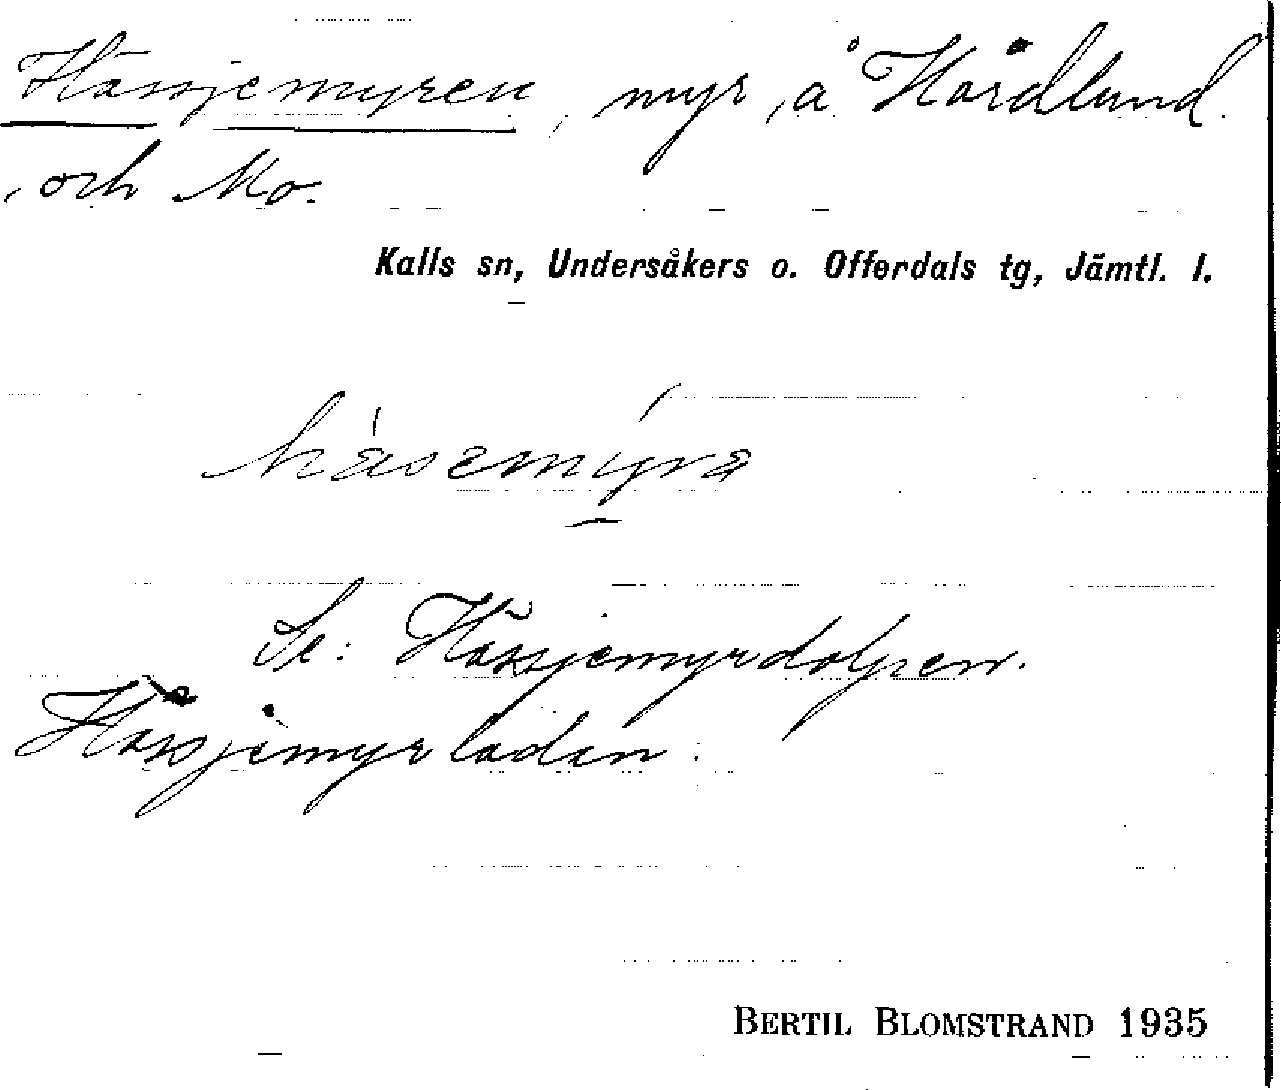 Hässjemyren, myr, å Hårdlund
och Mo.
Kalls sn, Undersåkers o. Offerdals tg, Jämtl. l.
häsemyra
Se: Hässjemyrdalpen.
Hässjemyrladan.
BERTIL BLOMSTRAND 1935